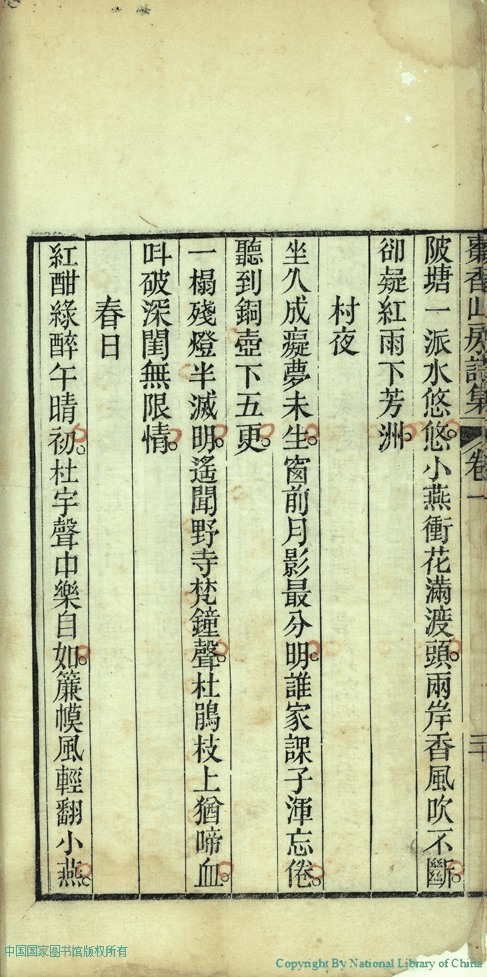 棗香山房詩集 卷一 二十
陂塘一派水悠悠小燕衝花滿渡頭兩岸香風吹不斷
卻疑紅雨下芳洲
村夜
坐久成癡夢未生窗前月影最分明誰家課子渾忘倦
聽到銅壺下五更
一榻殘燈半滅明遙聞野寺梵鐘聲杜鵑枝上猶啼血
叫破深閨無限情
春日
紅酣綠醉午晴初杜宇聲中樂自如簾幙風輕翻小燕
中国国家图书馆版权所有
Copyright By National Library of China